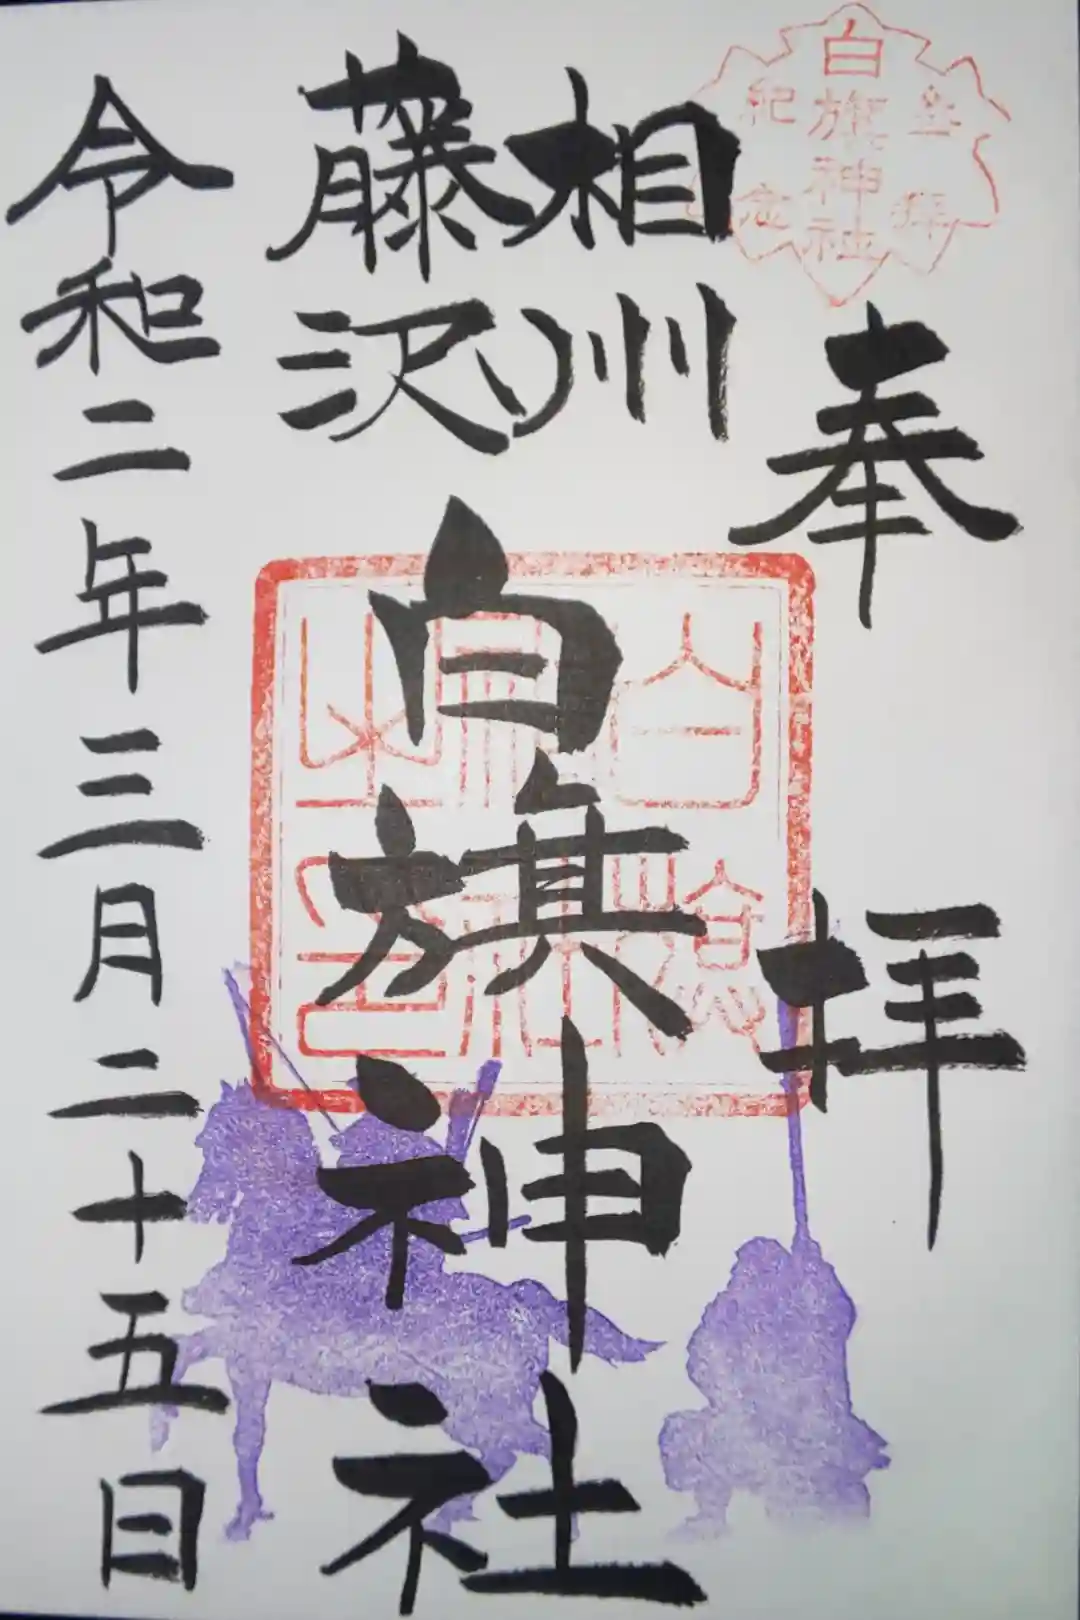 白旗神社
参拝
紀念
奉拝
相州
藤沢
白旗神社
令和二年三月二十五日